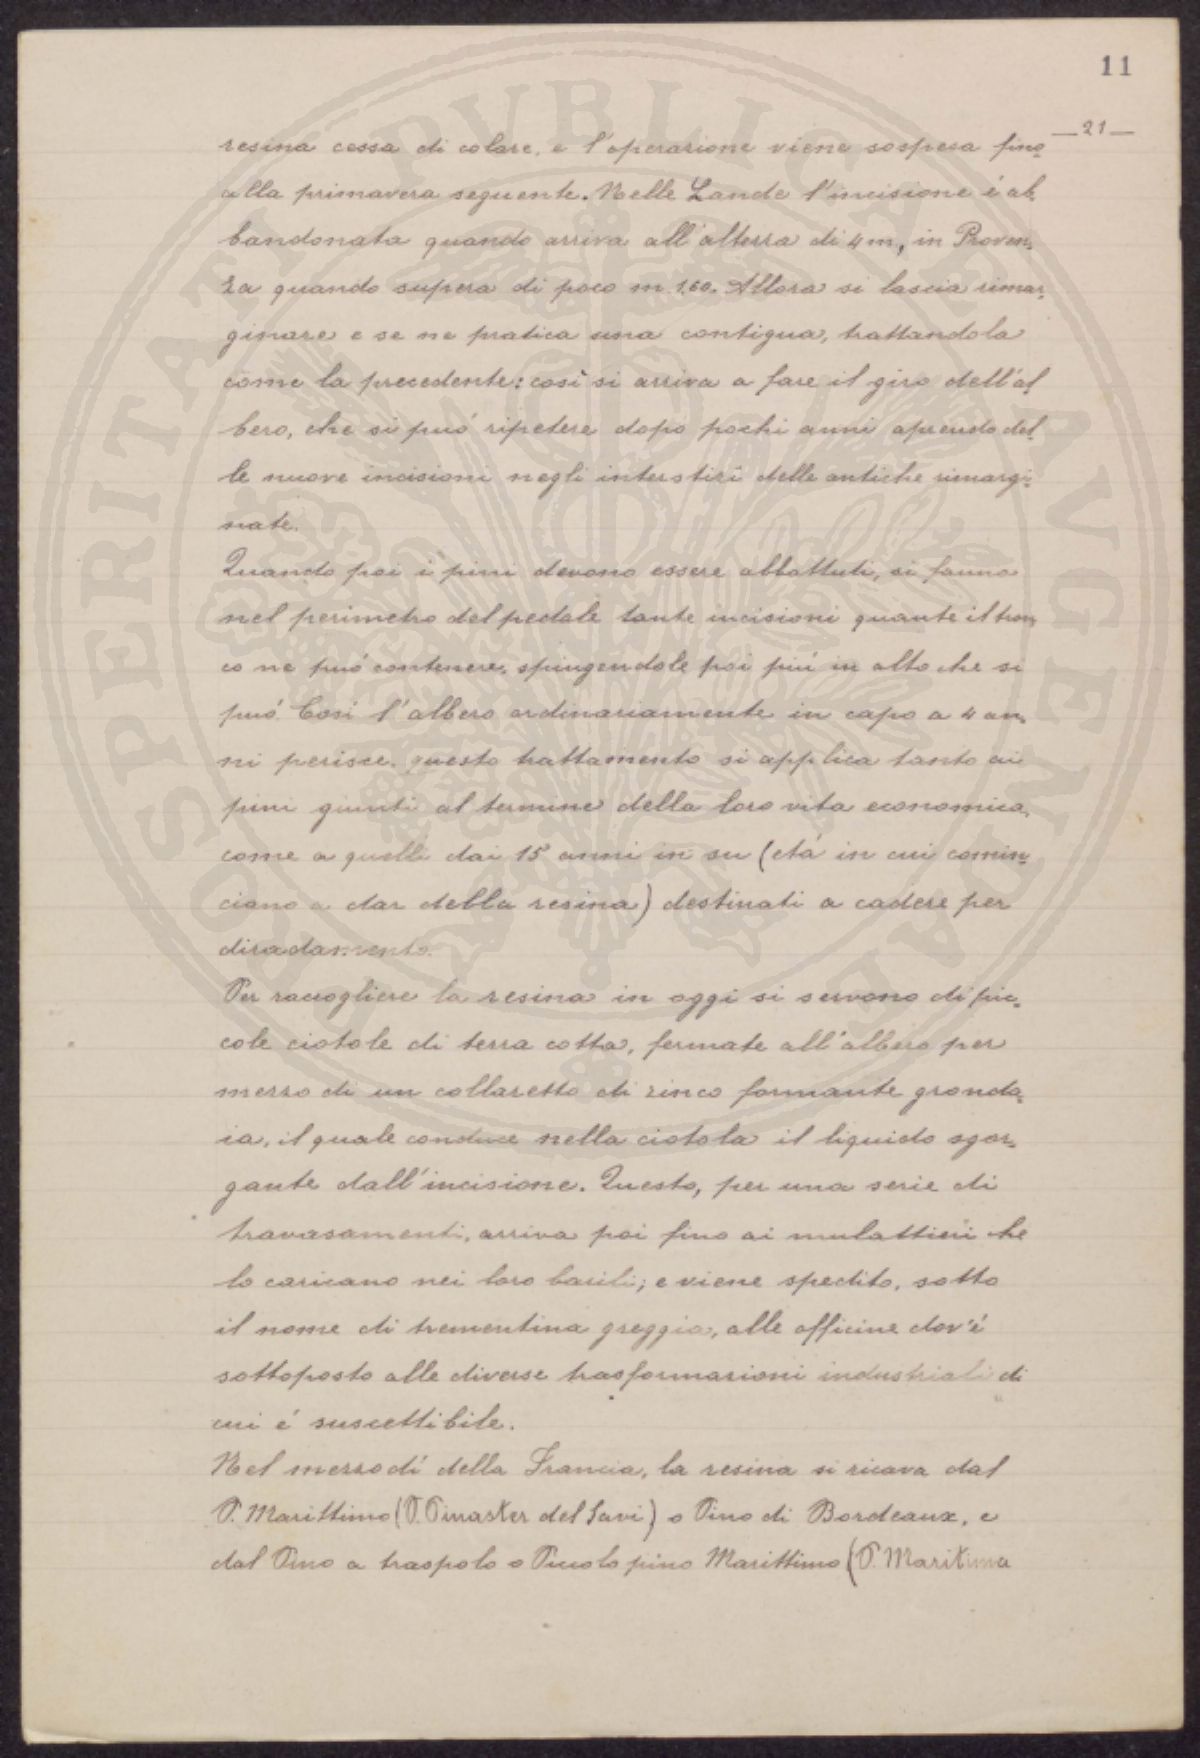 11
—21—
resina cessa di colare, e l'operazione viene sospesa fino
alla primavera seguente. Nelle Lande l'incisione é ab-
bandonata quando arriva all'altezza di 4 m, in Proven-
za quando supera di poco m 1,60. Allora si lascia rimar-
ginare e se ne pratica una contigua, trattandola
come la precedente: cosí si arriva a fare il giro dell'al-
bero, che si puó ripetere dopo pochi anni aprendo del-
le nuove incisioni negli interstizi delle antiche rimargi-
nate.
Quando poi i pini devono essere abbattuti, si fanno
nel perimetro del pedale tante incisioni quante il tron-
co ne puó contenere, spingendole poi piú in alto che si
puó. Cosí l'albero ordinariamente in capo a 4 an-
ni perisce. questo trattamento si applica tanto ai
pini giunti al termine della loro vita economica,
come a quelli dai 15 anni in su (etá in cui comin-
ciano a dar della resina) destinati a cadere per
diradamento.
Per raccogliere la resina in oggi si servono di pic-
cole ciotole di terra cotta, fermate all'albero per
mezzo di un collaretto di zinco formante gronda-
ia, il quale conduce nella ciotola il liquido sgor-
gante dall'incisione. Questo, per una serie di
travasamenti, arriva poi fino ai mulattieri che
lo caricano nei loro barili; e viene spedito, sotto
il nome di trementina greggia, alle officine dov'é
sottoposto alle diverse trasformazioni industriali di
cui é suscettibile.
Nel mezzodí della Francia, la resina si ricava dal
P. Marittimo (P. Pinaster del Savi) o Pino di Bordeaux, e
dal Pino a traspolo o Piccolo pino Marittimo (P. Maritima
PROSPERITATI PVBLICAE AVGENDAE